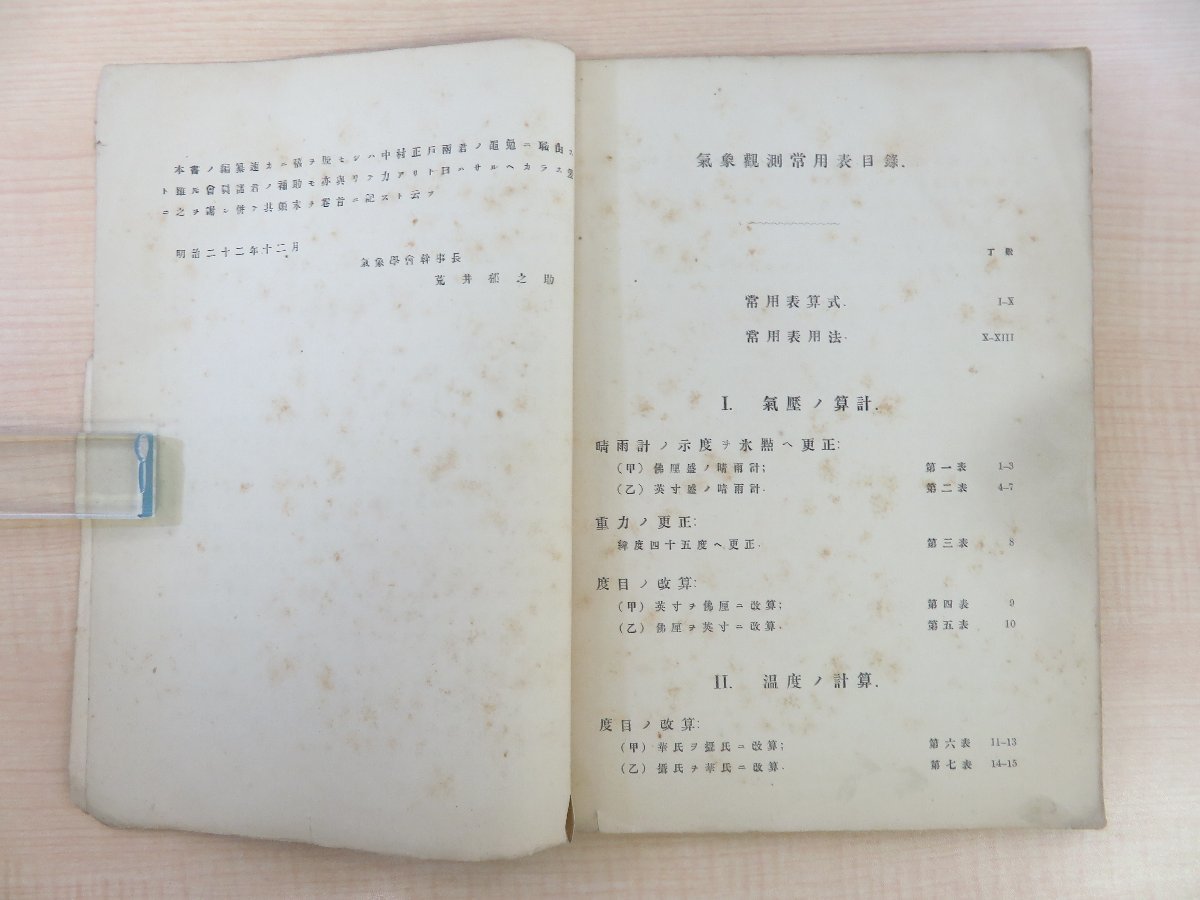 本書ノ編纂速カニ稿ヲ脱セシハ中村正戸兩君ノ黽勉ニ職由ス
ト雖ル會員諸君ノ補助モ亦與リテ力アリト曰ハサルヘカラス
ニ之ヲ謝シ併テ其顛末ヲ卷首ニ記スト云フ
明治二十二年十二月
氣象學會幹事長
荒井郁之助
氣象觀測常用表目錄.
丁數
常用表算式. I-X
常用表用法. X-XIII
I. 氣壓ノ算計.
晴雨計ノ示度ヲ氷點ヘ更正:
(甲) 佛厘盛ノ晴雨計; 第一表 1-3
(乙) 英寸盛ノ晴雨計. 第二表 4-7
重力ノ更正:
緯度四十五度ヘ更正. 第三表 8
度目ノ改算:
(甲) 英寸ヲ佛厘ニ改算; 第四表 9
(乙) 佛厘ヲ英寸ニ改算. 第五表 10
II. 温度ノ計算.
度目ノ改算:
(甲) 華氏ヲ攝氏ニ改算; 第六表 11-13
(乙) 攝氏ヲ華氏ニ改算. 第七表 14-15